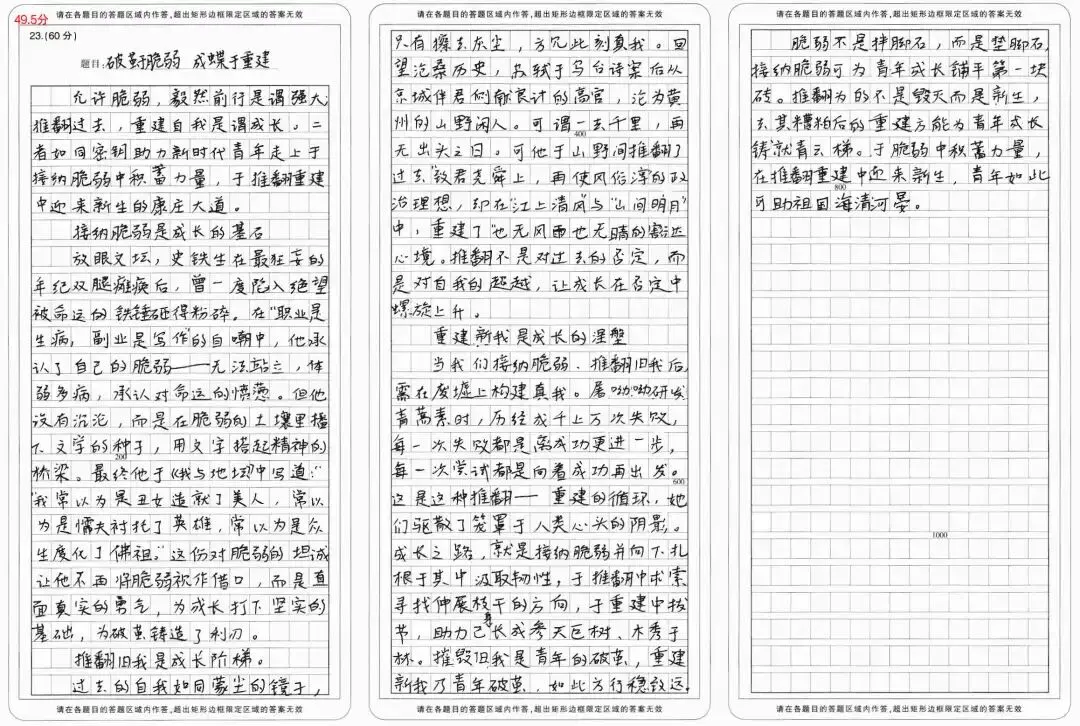 请在各题目的答题区域内作答,超出矩形边框限定区域的答案无效
49.5分
23.(60分)
题目:破茧于脆弱 成蝶于重建
允许脆弱,毅然前行是谓强大;
推翻过去,重建自我是谓成长。二
者如同密钥助力新时代青年走上于
接纳脆弱中积蓄力量,于推翻重建
中迎来新生的康庄大道。
接纳脆弱是成长的基石
放眼文坛,史铁生在最狂妄的
年纪双腿瘫痪后,曾一度陷入绝望
被命运的铁锤砸得粉碎。在"职业是
生病,副业是写作"的自嘲中,他承
认了自己的脆弱——无法站立,体
弱多病,承认对命运的愤懑。但他
没有沉沦,而是在脆弱的土壤里播
下文学的种子,用文字搭起精神的
200
桥梁。最终他于《我与地坛》中写道:"
"我常以为是丑女造就了美人,常以
为是懦夫衬托了英雄,常以为是众
生度化了佛祖。"这份对脆弱的坦诚
让他不再将脆弱视作借口,而是直
面真实的勇气,为成长打下坚实的
基础,为破茧铸造了利刃。
推翻旧我是成长阶梯。
过去的自我如同蒙尘的镜子,
请在各题目的答题区域内作答,超出矩形边框限定区域的答案无效
请在各题目的答题区域内作答,超出矩形边框限定区域的答案无效
只有擦去灰尘,方见此刻真我。回
望沧桑历史,苏轼于乌台诗案后从
京城伴君侧献良计的高官,沦为黄
州的山野闲人。可谓一去千里,再
400
无出头之日。可他于山野间推翻了
过去"致君尧舜上,再使风俗淳"的政
治理想,却在"江上清风"与"山间明月"
中,重建了"也无风雨也无晴"的豁达
心境。推翻不是对过去的否定,而
是对自我的超越,让成长在否定中
螺旋上升。
重建新我是成长的涅槃
当我们接纳脆弱、推翻旧我后,
需在废墟上构建真我。屠呦呦研发
青蒿素时,历经成千上万次失败,
每一次失败都是离成功更进一步,
每一次尝试都是向着成功再出发。
600
这是这种推翻——重建的循环,她
们驱散了笼罩于人类心头的阴影。
成长之路,就是接纳脆弱并向下扎
根于其中汲取韧性,于推翻中求索
寻找伸展枝干的方向,于重建中拔
节,助力己身长成参天巨树、木秀于
林。摧毁旧我是青年的破茧,重建
新我乃青年破茧,如此方行稳致远。
请在各题目的答题区域内作答,超出矩形边框限定区域的答案无效
请在各题目的答题区域内作答,超出矩形边框限定区域的答案无效
脆弱不是拌脚石,而是垫脚石,
接纳脆弱可为青年成长铺平第一块
砖。推翻为的不是毁灭而是新生,
去其糟粕后的重建方能为青年成长
铸就青云梯。于脆弱中积蓄力量,
在推翻重建中迎来新生,青年如此
800
可助祖国海清河晏。
1000
请在各题目的答题区域内作答,超出矩形边框限定区域的答案无效